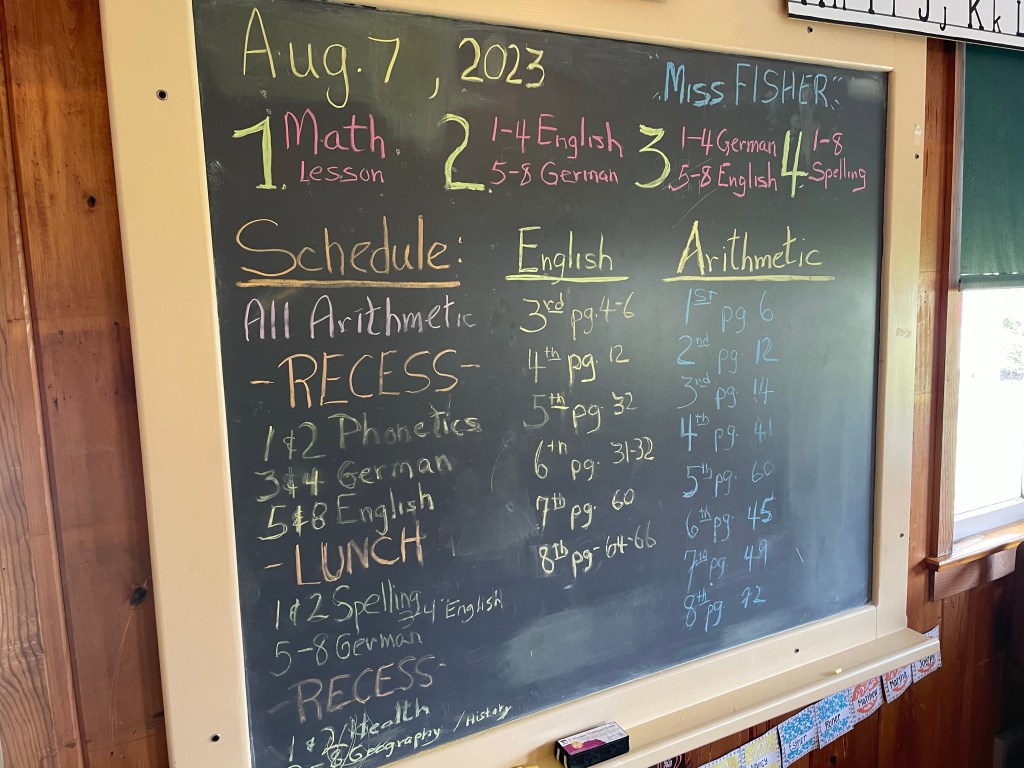 Aug. 7, 2023
"Miss FISHER"
1. Math Lesson
2. 1-4 English
5-8 German
3. 1-4 German
5-8 English
4. 1-8 Spelling
Schedule:
All Arithmetic
- RECESS -
1 & 2 Phonetics
3 & 4 German
5 & 8 English
- LUNCH
1 & 2 Spelling 3-4 English
5-8 German
- RECESS -
1 & 2 / Health
8 / Geography / History
English
3rd pg. 4-6
4th pg. 12
5th pg. 32
6th pg. 31-32
7th pg. 60
8th pg. 64-66
Arithmetic
1st pg 6
2nd pg. 12
3rd pg. 14
4th pg. 41
5th pg. 60
6th pg. 45
7th pg. 49
8th pg. 72
Jj Kk